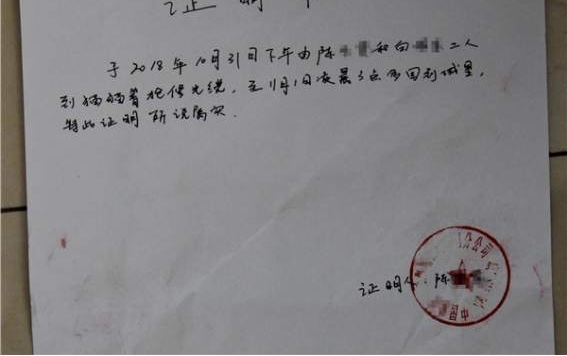 证明
于2018年10月31日下午由陈 和白 二人
到 抢修光缆,至11月1日凌晨3点多回到城里,
特此证明 所说属实.
证明人:陈
公司
中国